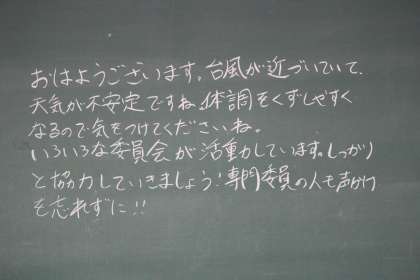 おはようございます。台風が近づいていて、
天気が不安定ですね。体調をくずしやすく
なるので気をつけてくださいね。
いろいろな委員会が活動しています。しっかり
と協力していきましょう!専門委員の人も声かけ
を忘れずに!!